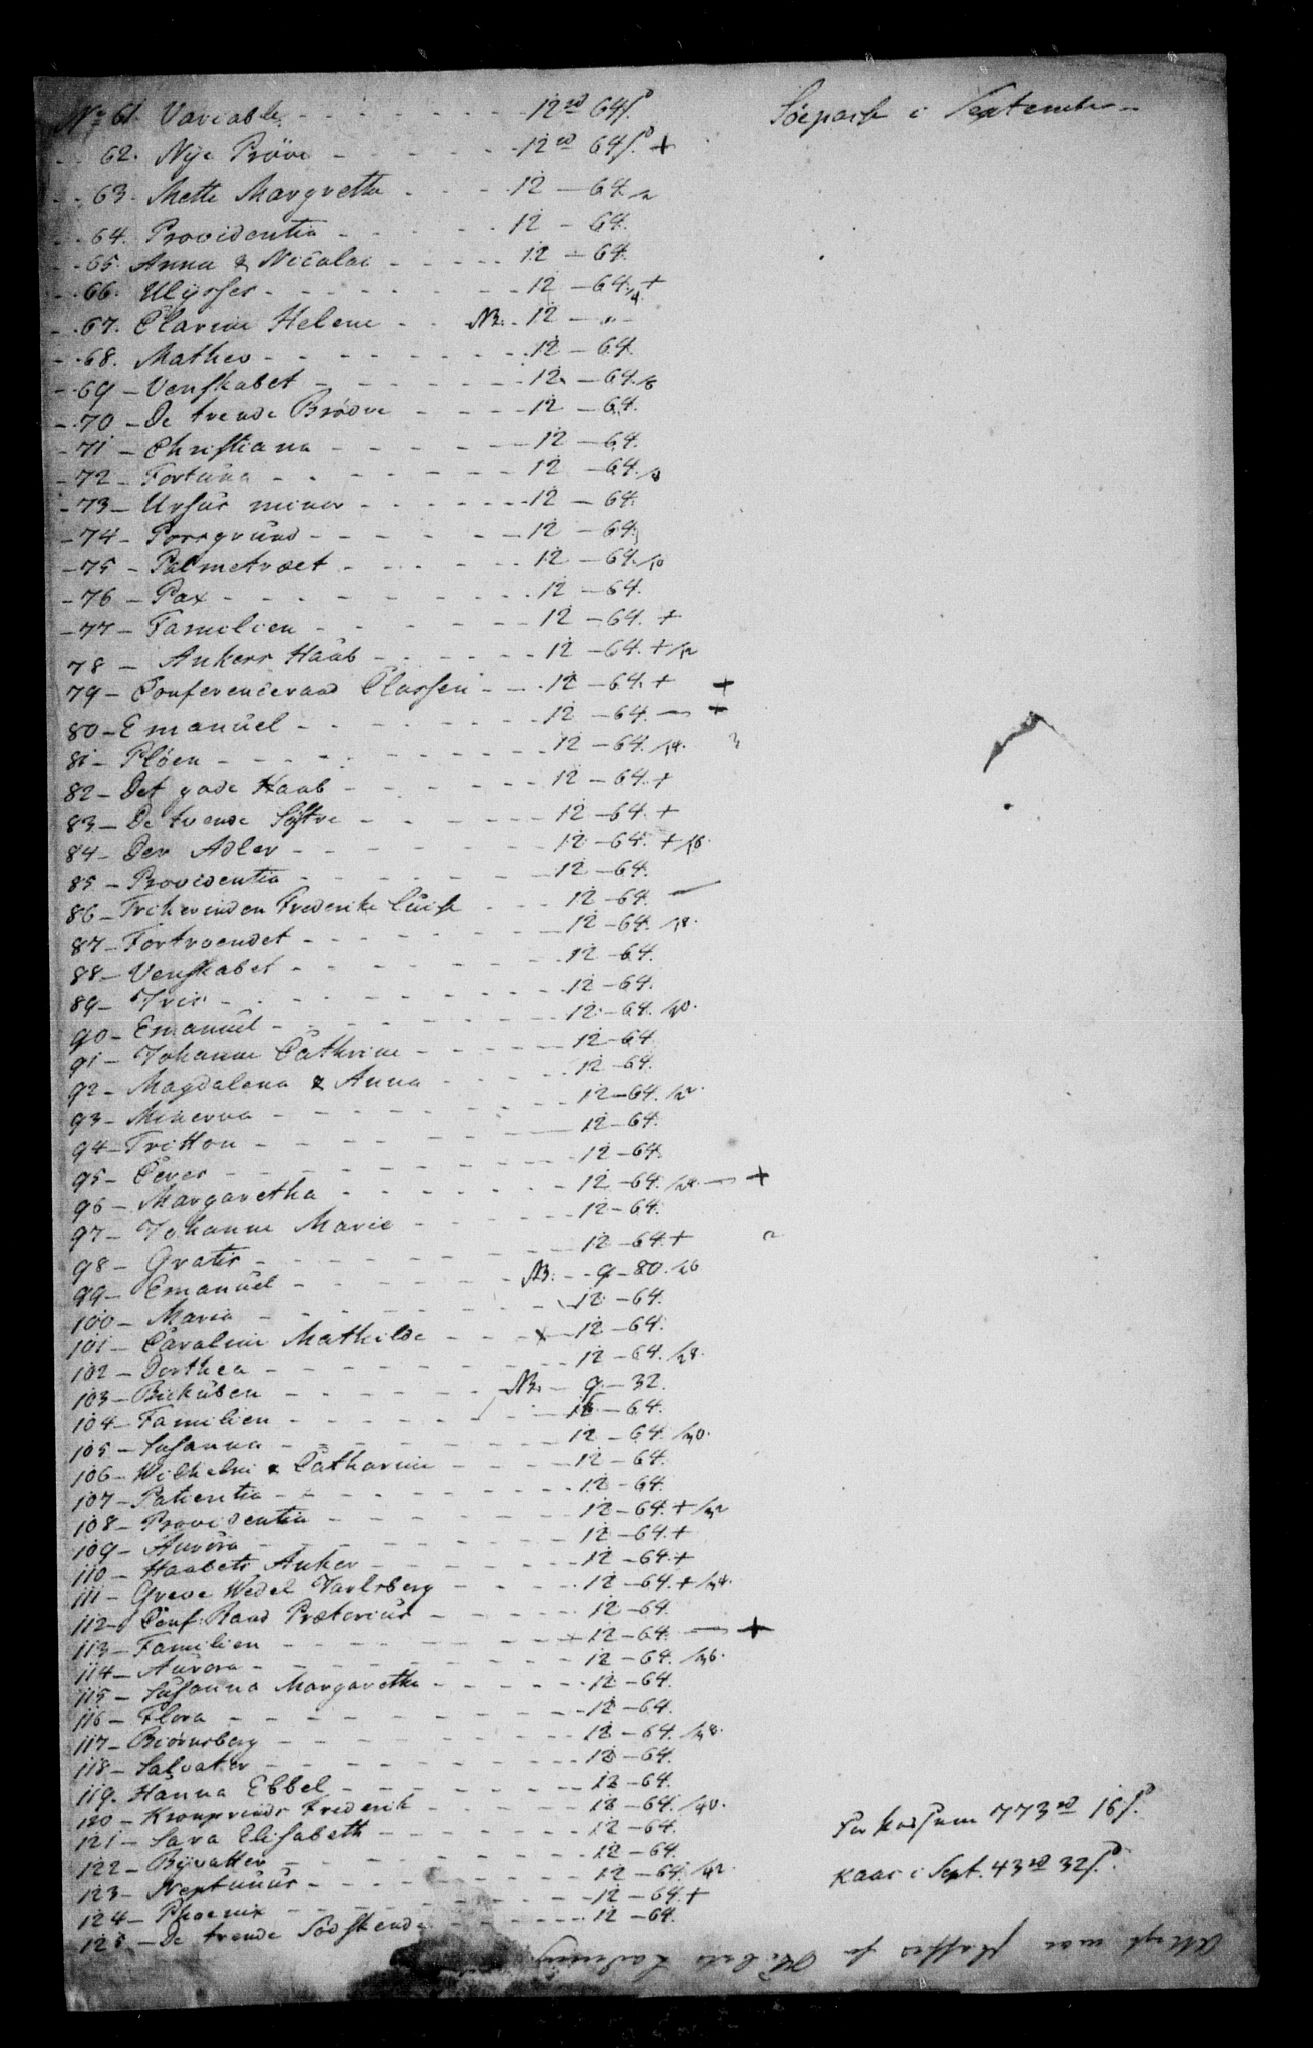 Søepass i September
No 61. Variable 12 rd 64 s.
62. Nye Pröve 12 rd 64 s. +
63. Mette Margretha 12 - 64. /2
64. Providentia 12 - 64.
65. Anna & Nicolai 12 - 64.
66. Ulysses 12 - 64. /4 +
67. Clarine Helene NB. 12 - " -
68. Matheo 12 - 64.
69 - Venskabet 12 - 64. /6
70 - De trende Brödre 12 - 64.
71 - Christiana 12 - 64.
72 - Fortuna 12 - 64. /8
73 - Ursus minor 12 - 64.
74 - Porsgrund 12 - 64.
75 - Palmetræet 12 - 64. /10
76 - Pax 12 - 64.
77 - Familien 12 - 64. +
78 - Ankers Haab 12 - 64. + /12
79 - Conferenceraad Classen 12 - 64. + +
80 - Emanuel 12 - 64. — +
81 - Pløen 12 - 64. /14.
82 - Det gode Haab 12 - 64. +
83 - De trende Søstre 12 - 64. +
84 - Der Adler 12 - 64. + /16.
85 - Providentia 12 - 64.
86 - Friherinden Frederike Luise 12 - 64. —
87 - Fortroendet 12 - 64. /18.
88 - Venskabet 12 - 64.
89 - Iris 12 - 64.
90 - Emanuel 12 - 64. /20.
91 - Johanne Cathrine 12 - 64.
92 - Magdalena & Anna 12 - 64.
93 - Minerva 12 - 64. /22.
94 - Tritton 12 - 64.
95 - Ceres 12 - 64.
96 - Margaretha 12 - 64. /24. — +
97 - Johanne Marie 12 - 64.
98 - Gratis 12 - 64. +
99 - Emanuel NB. 9 - 80. /26
100 - Maria 12 - 64.
101 - Caroline Mathilde x 12 - 64.
102 - Dorthea 12 - 64. /28.
103 - Biekuben NB. 9 - 32.
104 - Familien 12 - 64.
105 - Susanna 12 - 64. /30.
106 - Wilhelm & Catharine 12 - 64.
107 - Patientia 12 - 64.
108 - Providentia 12 - 64. + /32
109 - Aurora 12 - 64. +
110 - Haabets Anker 12 - 64. +
111 - Greve Wedel Jarlsberg 12 - 64. + /34.
112 - Conf: Raad Prætorius 12 - 64.
113 - Familien x 12 - 64. — +
114 - Aurora 12 - 64. /36.
115 - Susanna Margaretha 12 - 64.
116 - Flora 12 - 64.
117 - Biörnsberg 12 - 64. /38.
118 - Salvator 12 - 64.
119. Hanna Ebbel 12 - 64.
120 - Kronprinds Frederik 12 - 64. /40.
121 - Sara Elisabeth 12 - 64.
122 - Byvatter 12 - 64.
123 - Neptunus 12 - 64. /42.
124 - Phoenix 12 - 64. +
125 - De trende Södskende 12 - 64.
773 rd 16 s.
i Sept. 43 rd 32 s.